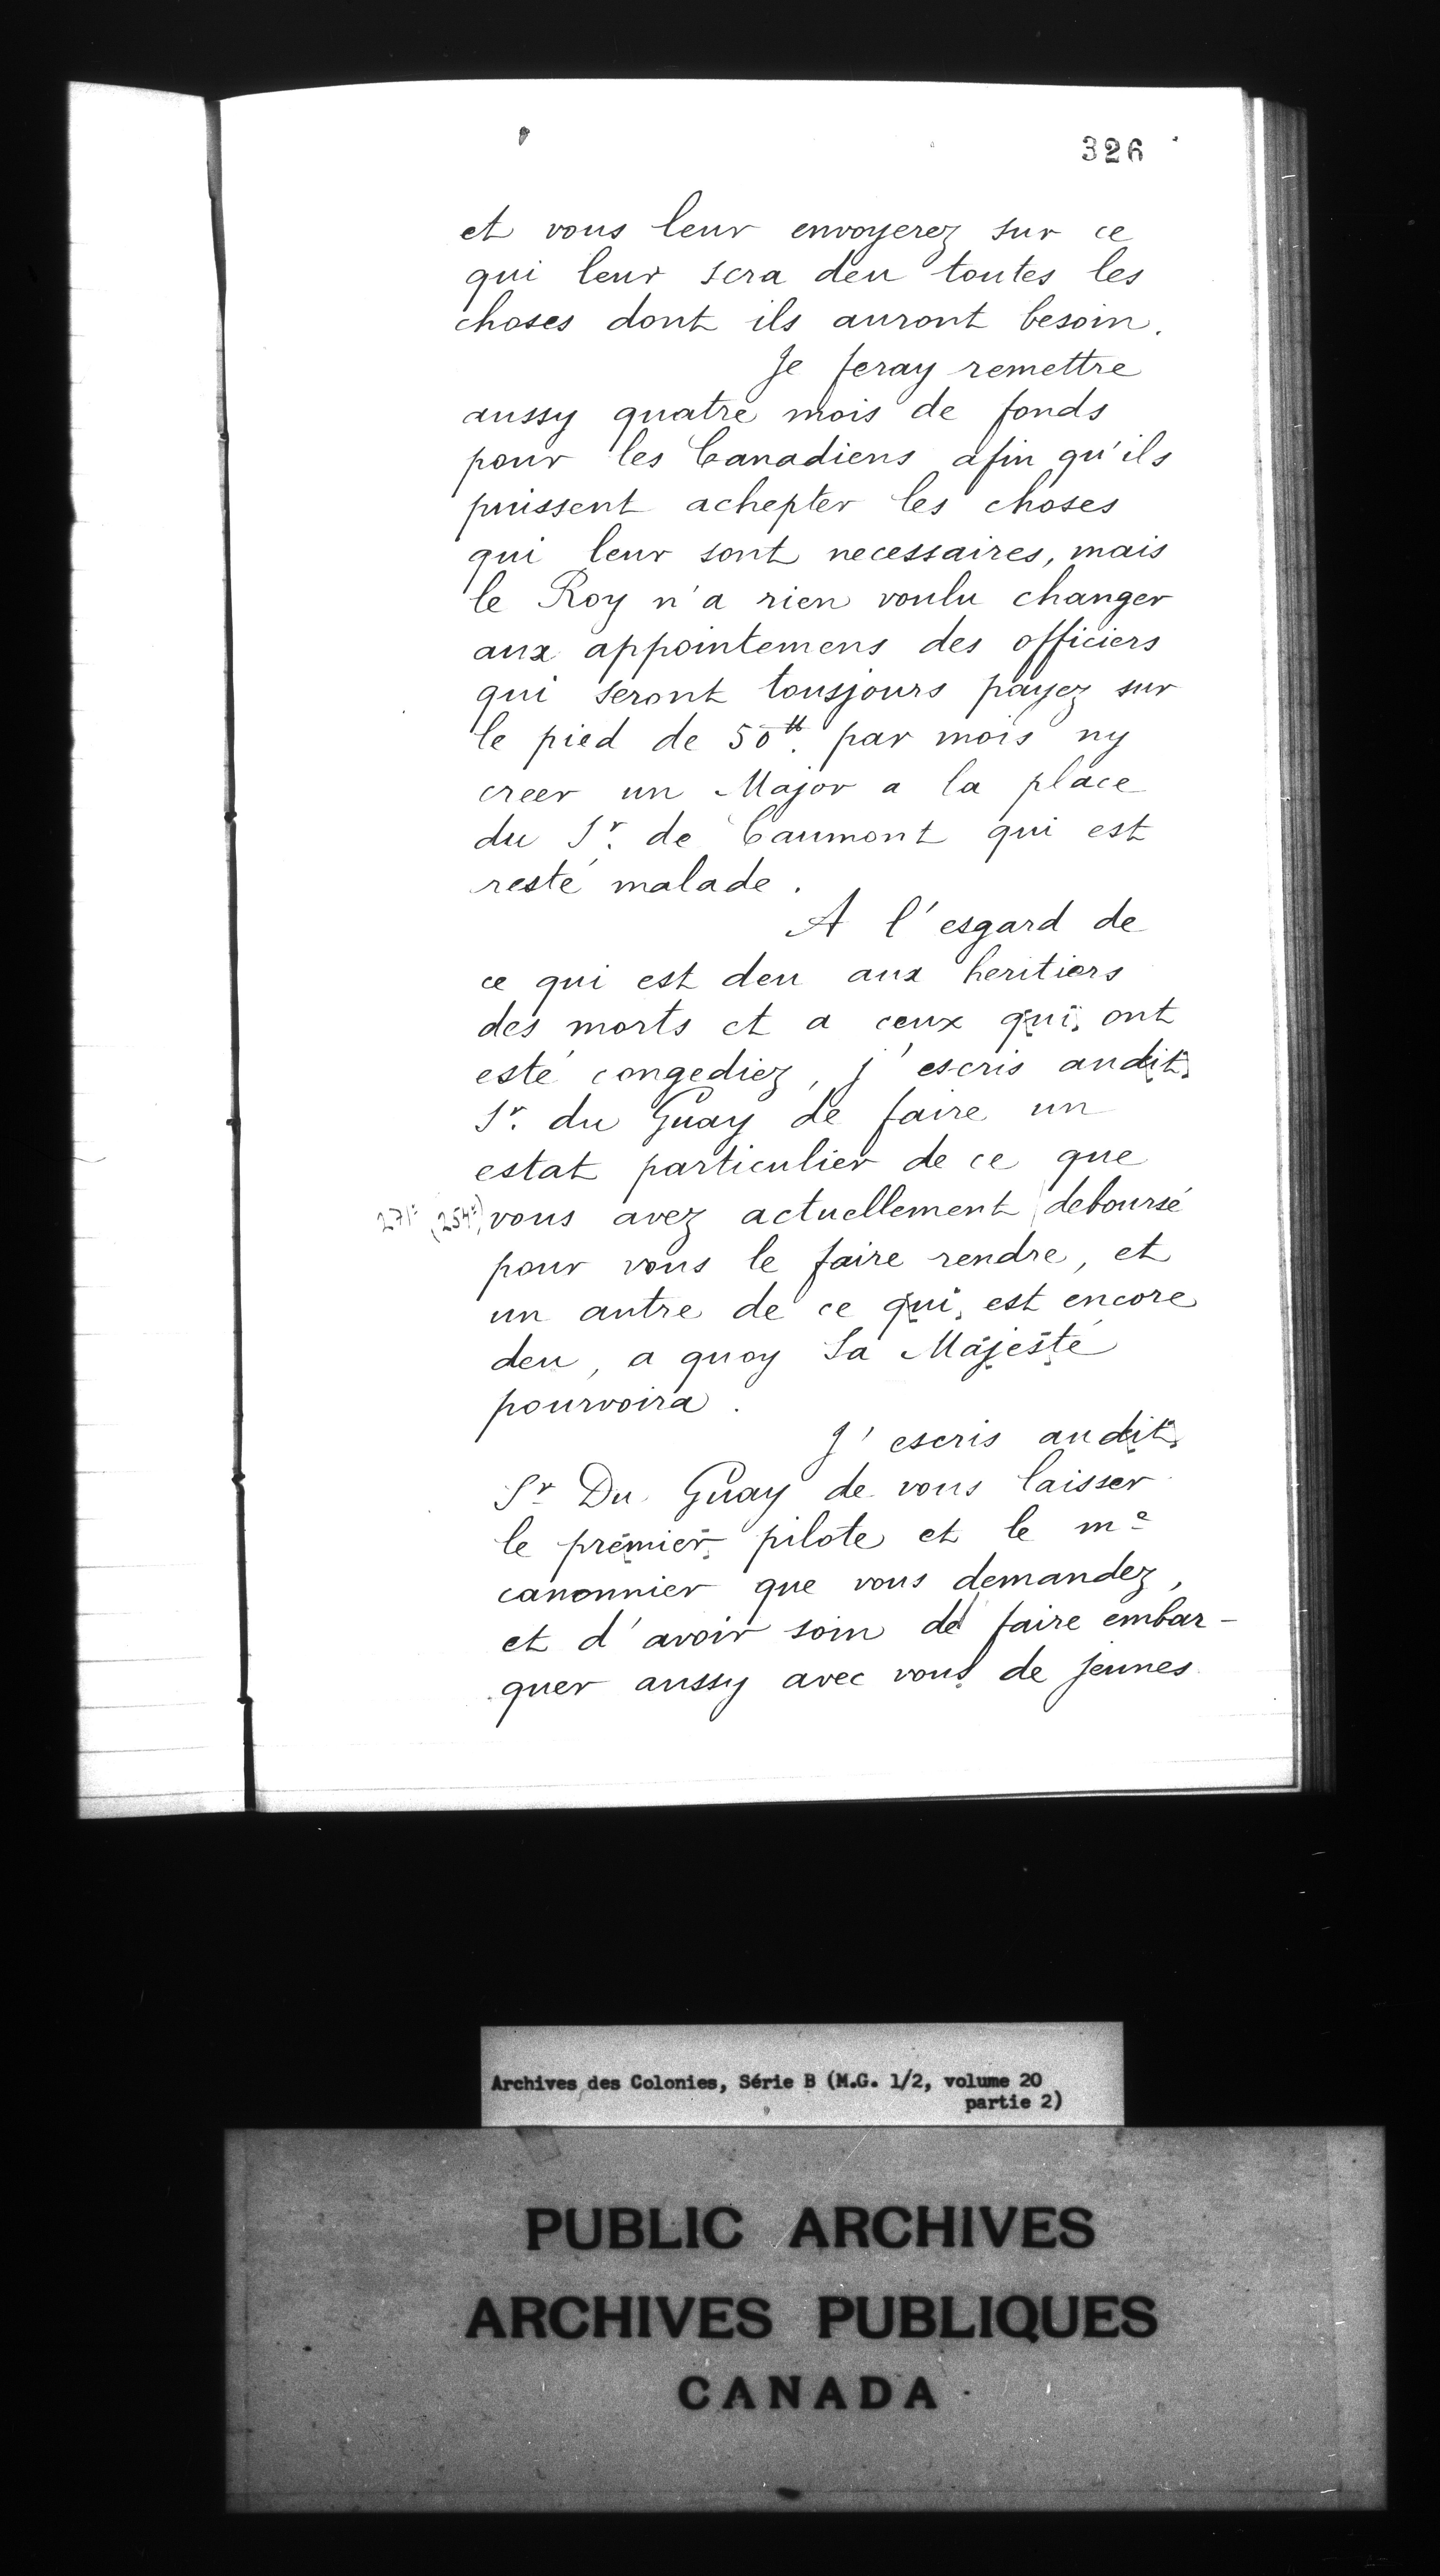 326
et vous leur envoyerez sur ce
qui leur sera deu toutes les
choses dont ils auront besoin.
Je feray remettre
aussy quatre mois de fonds
pour les Canadiens afin qu'ils
puissent achepter les choses
qui leur sont necessaires, mais
le Roy n'a rien voulu changer
aux appointemens des officiers
qui seront tousjours payez sur
le pied de 50ᵗᵗ. par mois ny
creer un Major a la place
du Sʳ. de Caumont qui est
resté malade.
A l'esgard de
ce qui est deu aux heritiers
des morts et a ceux qui ont
esté congediez, j'escris audit
Sʳ. du Guay de faire un
estat particulier de ce que
271 (254) vous avez actuellement deboursé
pour vous le faire rendre, et
un autre de ce qui est encore
deu, a quoy Sa Majesté
pourvoira.
J'escris audit
Sʳ Du Guay de vous laisser
le premier pilote et le mᵉ
canonnier que vous demandez,
et d'avoir soin de faire embar-
quer aussy avec vous de jeunes
Archives des Colonies, Série B (M.G. 1/2, volume 20
partie 2)
PUBLIC ARCHIVES
ARCHIVES PUBLIQUES
CANADA